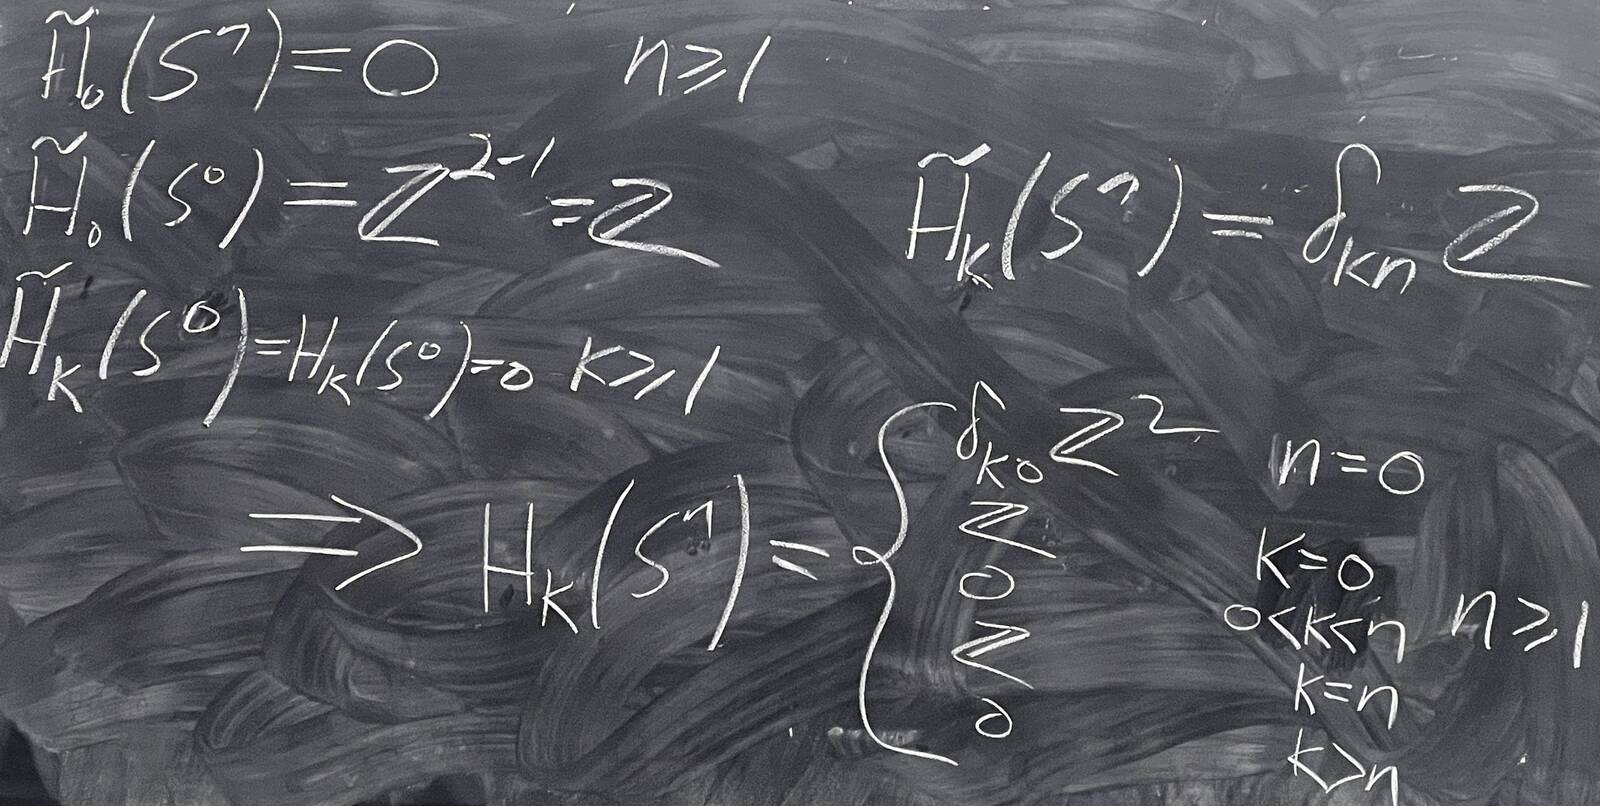 H̃₀(Sⁿ)=0 n≥1
H̃₀(S⁰)=ℤ²⁻¹=ℤ
H̃ₖ(S⁰)=Hₖ(S⁰)=0 k≥1
H̃ₖ(Sⁿ)=δₖₙℤ
⇒ Hₖ(Sⁿ)={
δₖ₀ℤ² n=0
ℤ k=0
0 0<k<n n≥1
ℤ k=n
0 k>n